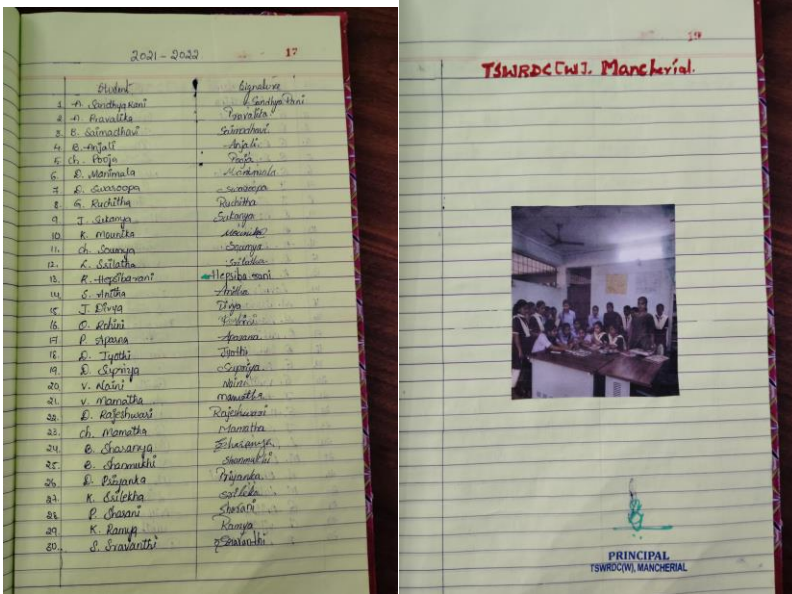 2021-2022
17
Student Signature
1. A. Sandhya Rani Sandhya Rani
2. A. Pravalika Pravalika
3. B. Saimadhavi Saimadhavi
4. B. Anjali Anjali
5. Ch. Pooja Pooja
6. D. Manimala Manimala
7. D. Swaroopa Swaroopa
8. G. Ruchitha Ruchitha
9. J. Sukanya Sukanya
10. K. Mounika Mounika
11. Ch. Soumya Soumya
12. L. Srilatha Srilatha
13. R. Hepsiba rani Hepsiba rani
14. S. Anitha Anitha
15. J. Divya Divya
16. O. Rohini Rohini
17. P. Aparna Aparana
18. D. Jyothi Jyothi
19. D. Supriya Supriya
20. V. Naini Naini
21. V. Mamatha Mamatha
22. D. Rajeshwari Rajeshwari
23. Ch. Mamatha Mamatha
24. B. Sharanya Sharanya
25. B. Shanmukhi Shanmukhi
26. D. Priyanka Priyanka
27. K. Srilekha Srileka
28. P. Sharani Sharani
29. K. Ramya Ramya
30. S. Sravanthi Sravandhi
19
TSWRDC[W]. Mancherial.
PRINCIPAL
TSWRDC(W), MANCHERIAL